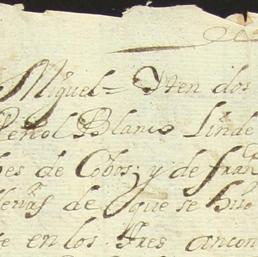 Miguel = Yten dos
Peñol Blanco Linde
es de Cobos; y de fran
de que se hiso
en los tres ancon